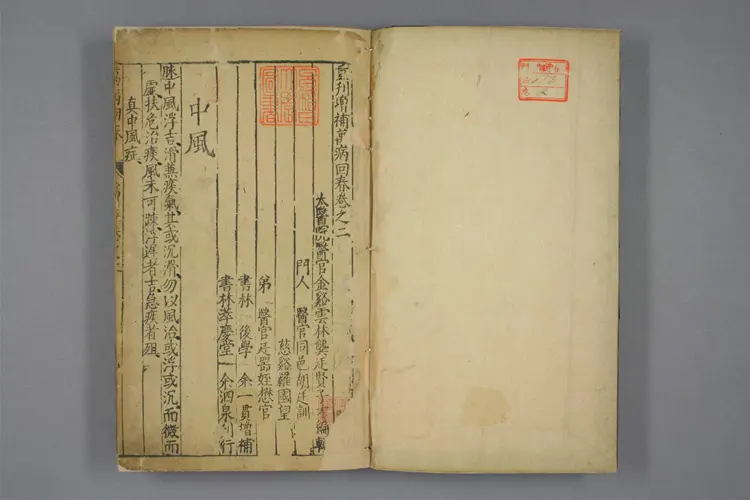 重刊增補萬病回春卷之二
太醫院醫官金谿雲林龔廷賢子才編輯
門人 醫官同邑胡廷訓
慈谿羅國望
弟 醫官廷器姪懋官
書林 後學 余一貫增補
書林萃慶堂 余泗泉刊行
中風
脉中風浮吉滑兼痰氣其或沉滑勿以風治或浮或沉而微而
虛扶危治痰風未可踈浮遲者吉急疾者殂
真中風症